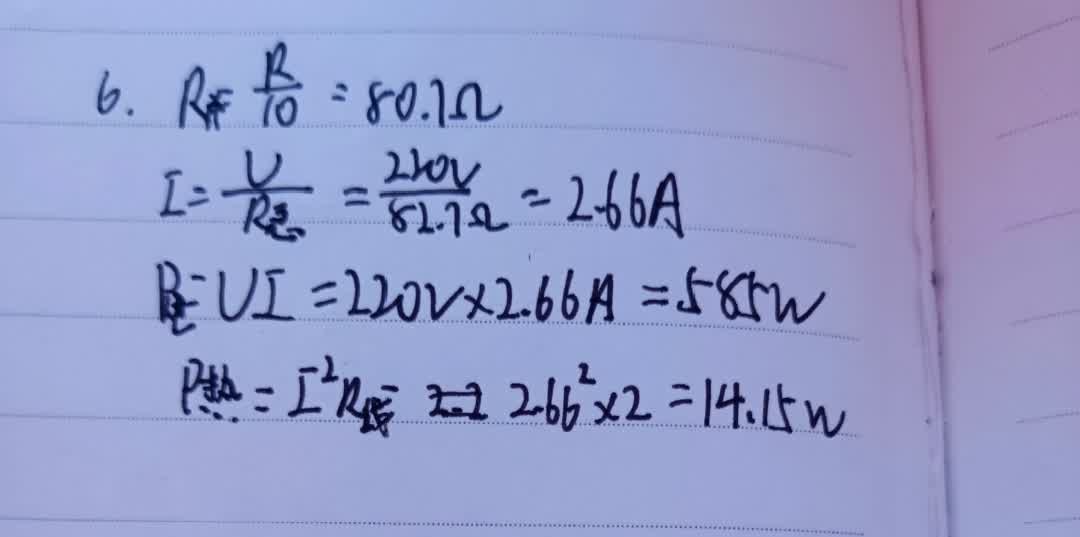 6. R并 = R/10 = 80.7Ω
I = U/R总 = 220V/82.7Ω = 2.66A
P总 = UI = 220V×2.66A = 585W
P热 = I²R线 = 2.66²×2 = 14.15W